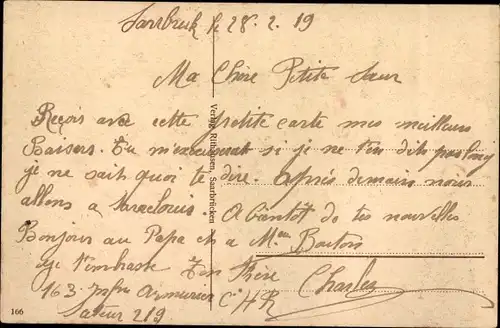 Sarrbruck le 28. 2. 19
Ma Chère Petite Sœur
Reçois avec cette petite carte mes meilleurs
Baisers. Tu m'excuserat si je ne t'en dit pas long
je ne sait quoi te dire. après demain nous
allons a Sarrelouis. A bientot de tes nouvelles
Bonjour au Papa et a Mme Bouton
je t'embrasse Ton Frère
Charles
163. Infrie Armurier Cie H R
Secteur 219
Verlag Rithausen, Saarbrücken
166